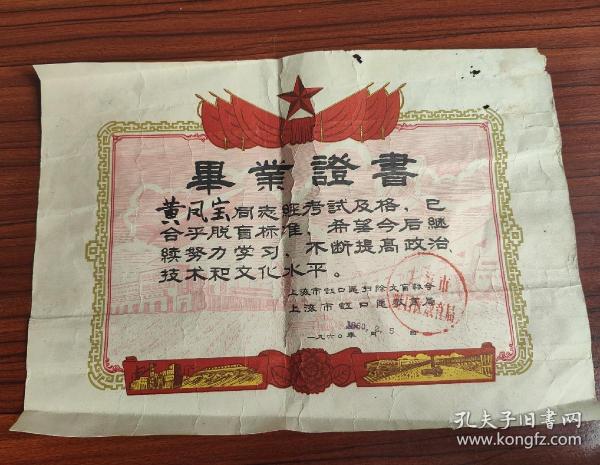 畢業證書
黄凤宝同志經考試及格,已
合乎脱盲标准,希望今后继
续努力学习,不断提高政治、
技术和文化水平。
上海市虹口區扫除文盲協会
上海市虹口區教育局
一九六〇年 月 日
1960. 2. 5
孔夫子旧書网
www.kongfz.com